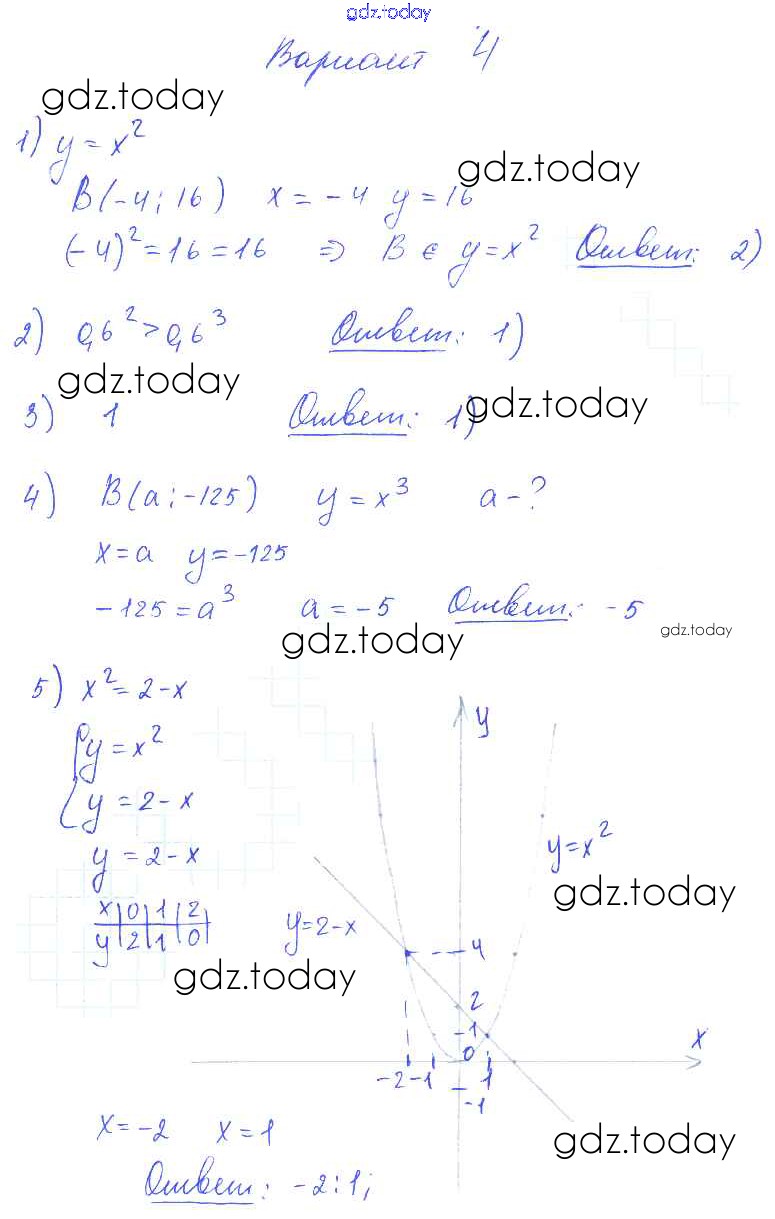 gdz.today
Вариант 4
gdz.today
1) y = x²
gdz.today
B(-4; 16) x = -4 y = 16
(-4)² = 16 = 16 ⇒ B ∈ y = x² Ответ: 2)
2) 0,6² > 0,6³ Ответ: 1)
gdz.today
3) 1 Ответ: 1)
gdz.today
4) B(a; -125) y = x³ a - ?
x = a y = -125
-125 = a³ a = -5 Ответ: -5
gdz.today
gdz.today
5) x² = 2 - x
y
{ y = x²
y = 2 - x
y = 2 - x
y = x²
gdz.today
x | 0 | 1 | 2
y | 2 | 1 | 0
y = 2 - x
4
gdz.today
2
1
0
x
-2 -1 1
-1
x = -2 x = 1
gdz.today
Ответ: -2; 1;